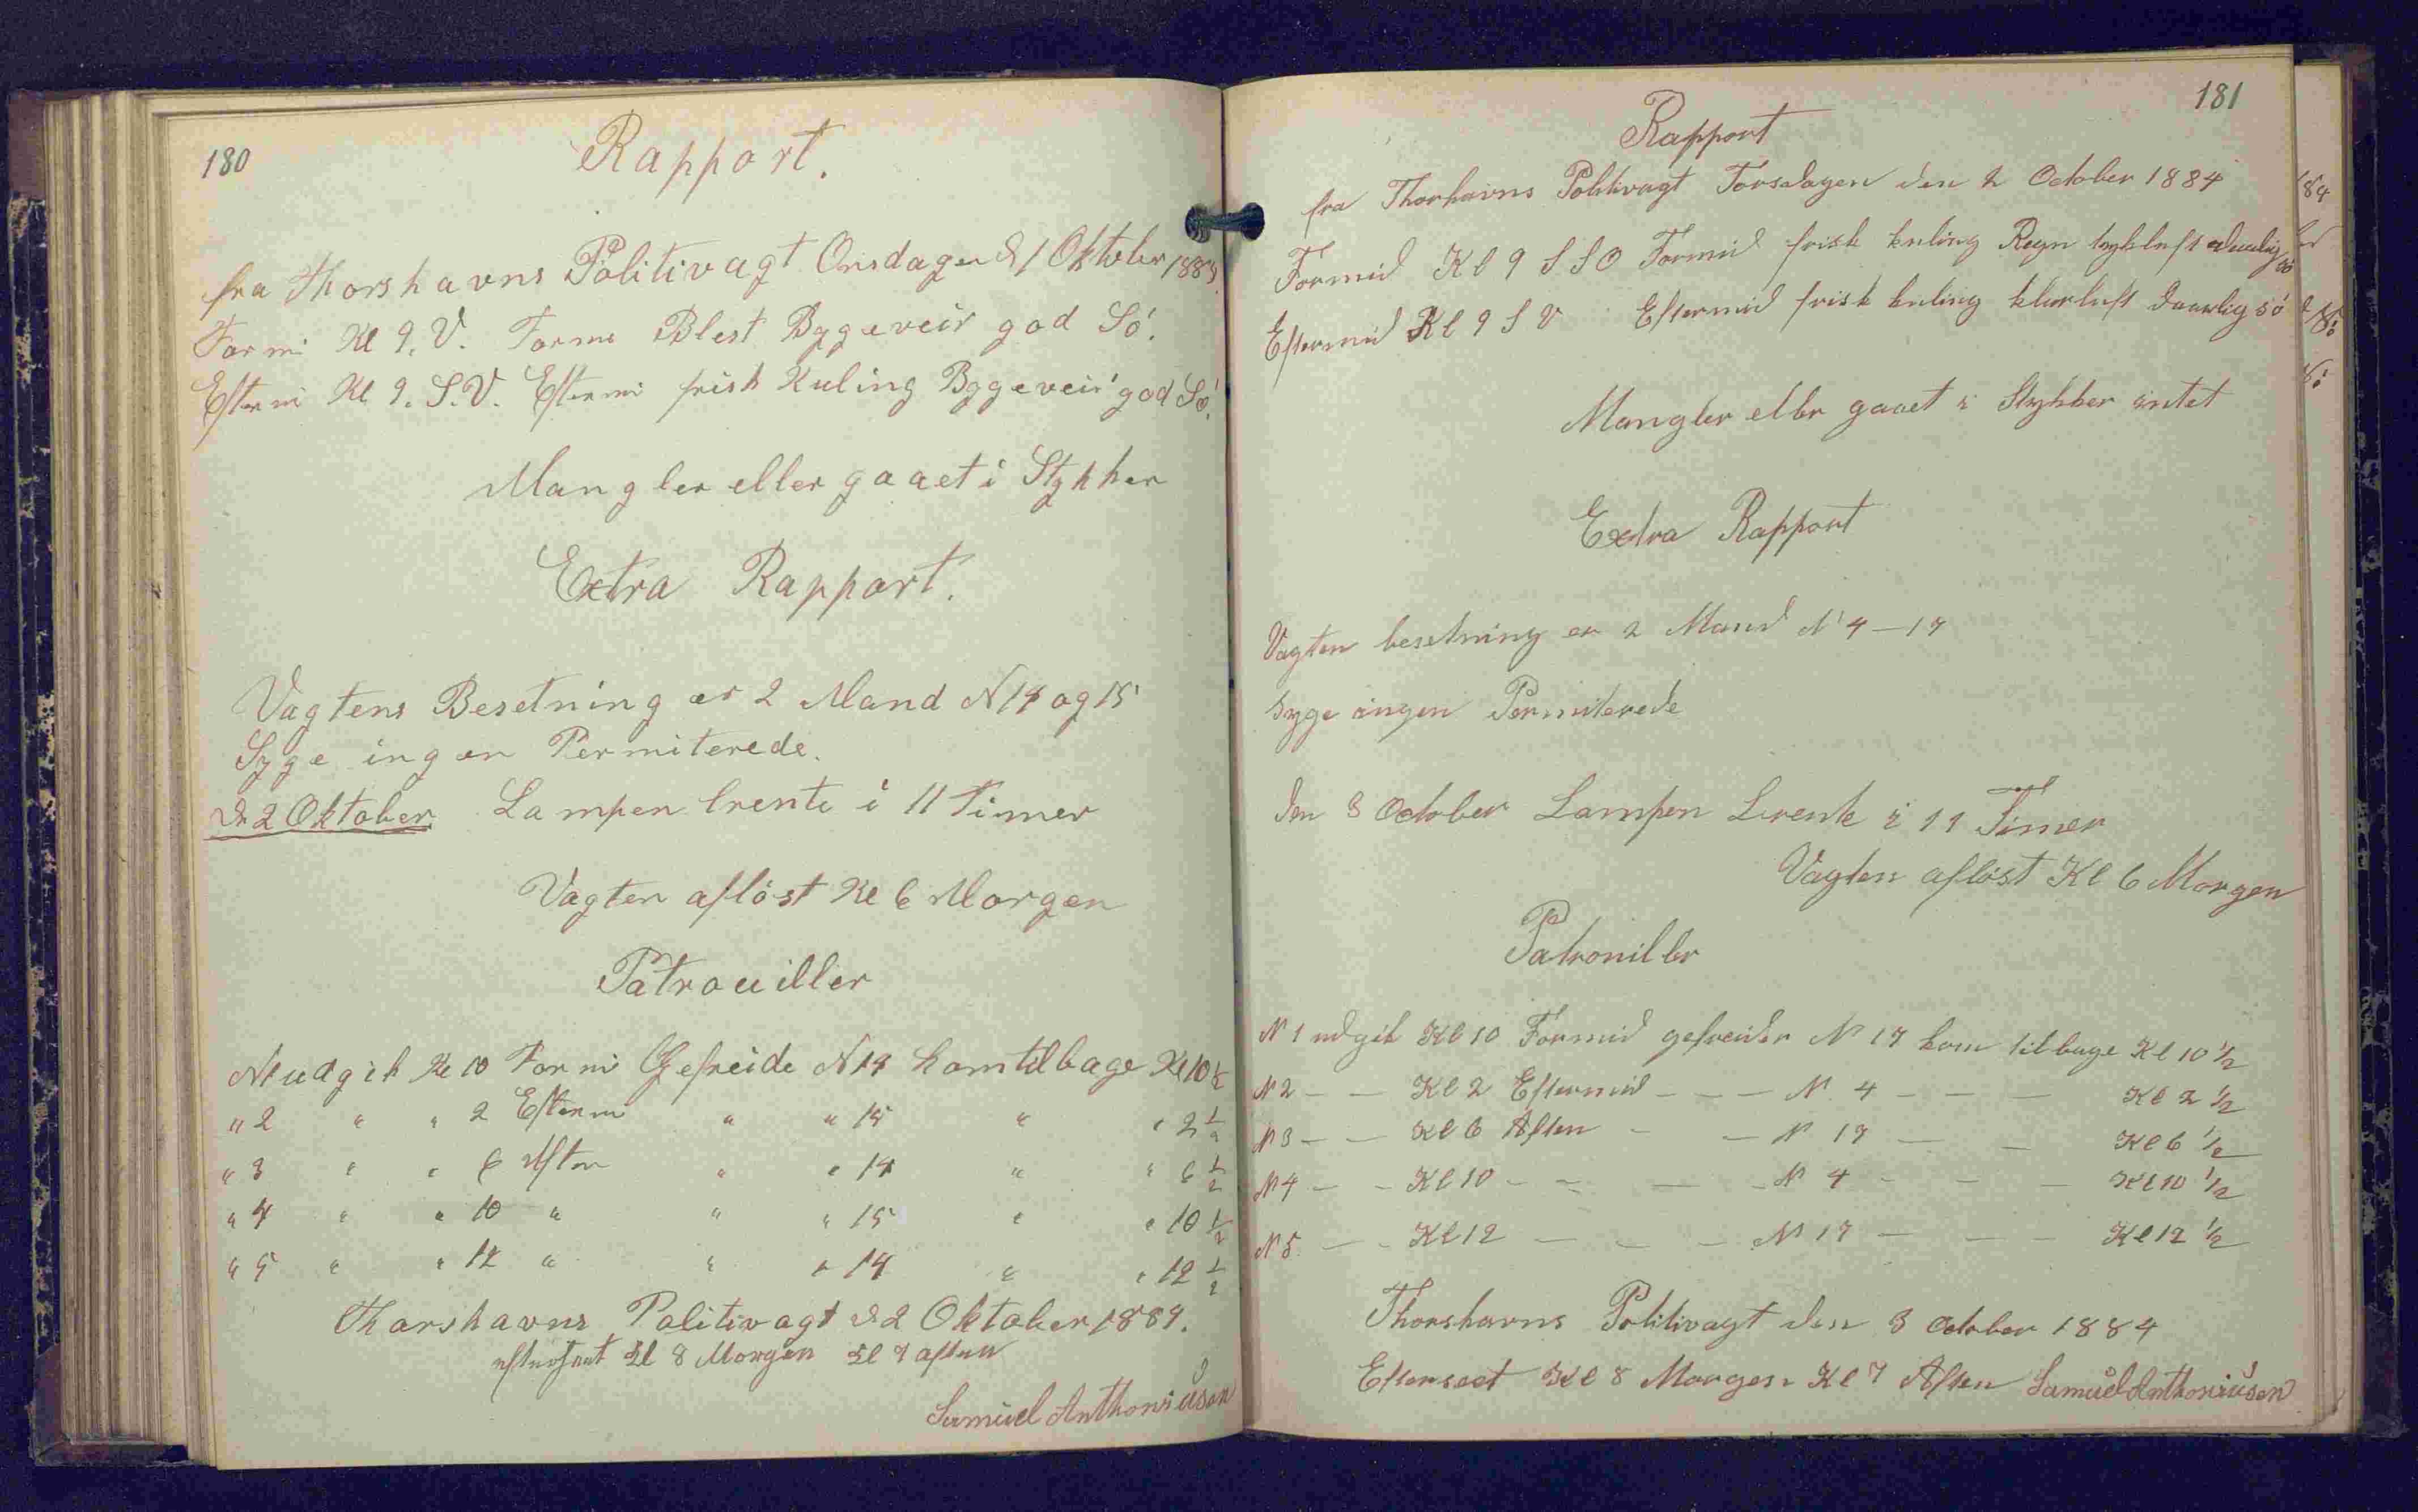 180
Rapport.
fra Thorshavns Politivagt Onsdagen d 1 Oktober 1884.
Formi Kl 9. V. Formi Blest Bygeveir god Sö.
Eftermi Kl 9. S.V. Eftermi frisk Kuling Bygeveir god Sö.
Mangler eller gaaet i Stykker
Extra Rapport.
Vagtens Besetning er 2 Mand N 14 og 15
Syge ingen Permiterede.
d 2 Oktober Lampen brente i 11 Timer
Vagten aflöst Kl 6 Morgen
Patrouiller
N 1 udgik Kl 10 Formi Gefreide N 14 kom tilbage Kl 10 1/2
" 2 " " 2 Eftermi " " 15 " " 2 1/2
" 3 " " 6 Aften " " 14 " " 6 1/2
" 4 " " 10 " " " 15 " " 10 1/2
" 5 " " 12 " " " 14 " " 12 1/2
Thorshavns Politivagt d 2 Oktober 1884.
efterseet Kl 8 Morgen Kl 7 aften
Samuel Anthoniusen
181
Rapport
fra Thorhavns Politivagt Torsdagen den 2 October 1884
Formid Kl 9 S S O Formid frisk kuling Regn tykluft daarlig sö
Eftermid Kl 9 S V Eftermid frisk kuling klarluft daarlig sö
Mangler eller gaaet i Stykker intet
Extra Rapport
Vagten besetning er 2 Mand N 4 — 17
Syge ingen Permiterede
den 3 October Lampen brente i 11 Timer
Vagten aflöst Kl 6 Morgen
Patrouiller
N 1 udgik Kl 10 Formid gefreider N 17 kom tilbage Kl 10 1/2
N 2 — — Kl 2 Eftermid — — — N 4 — — — Kl 2 1/2
N 3 — — Kl 6 Aften — — N 17 — — Kl 6 1/2
N 4 — — Kl 10 — — — — N 4 — — — Kl 10 1/2
N 5 — — Kl 12 — — — N 17 — — — Kl 12 1/2
Thorshavns Politivagt den 3 October 1884
Efterseet Kl 8 Morgen Kl 7 Aften Samuel Anthoniusen